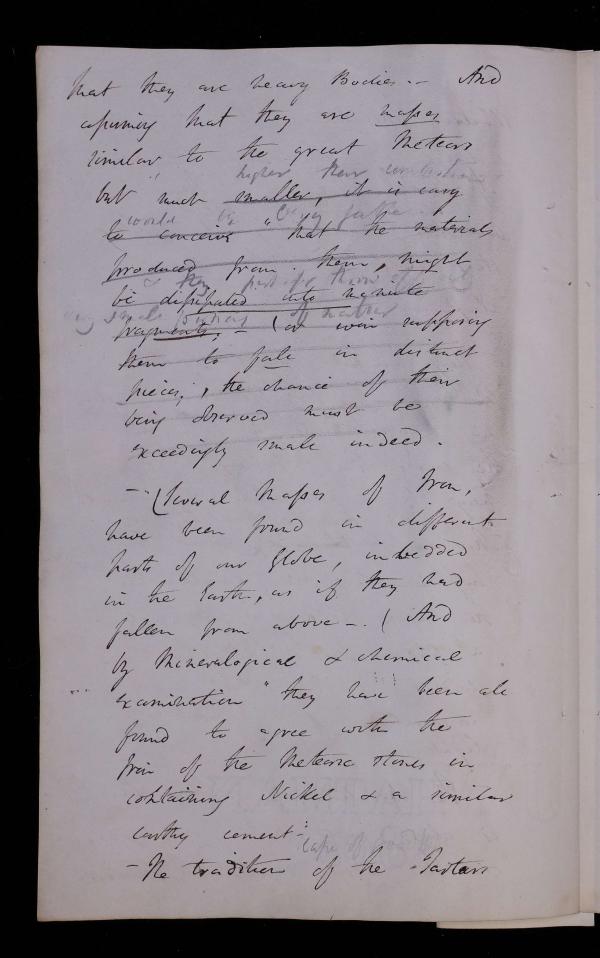 that they are heavy Bodies. - And
assuming that they are masses
similar to the great Meteors
higher their
but much smaller, it is easy
would be
to conceive that the materials
produced from them, might
& they
be dissipated into minute
small of matter
fragments; - (or even supposing
them to fall in distinct
pieces, the chance of their
being observed must be
exceedingly small indeed.
- (Several Masses of Iron,
have been found in different
parts of our Globe, imbedded
in the Earth, as if they had
fallen from above -. ( And
by Mineralogical & chemical
examination they have been all
found to agree with the
Iron of the Meteoric stones in
containing Nickel & a similar
earthy cement -
Cape of
- The tradition of the Tartars